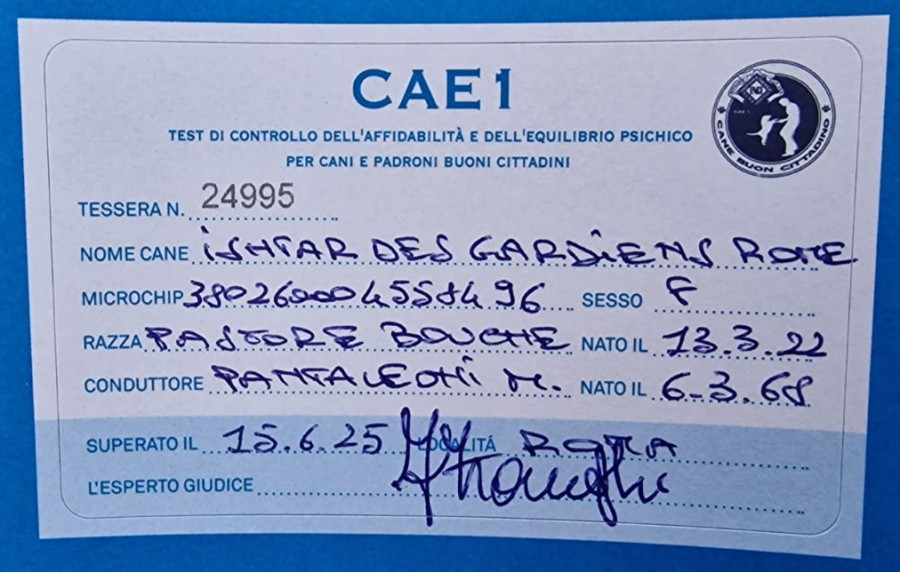 CAE 1
TEST DI CONTROLLO DELL'AFFIDABILITÀ E DELL'EQUILIBRIO PSICHICO
PER CANI E PADRONI BUONI CITTADINI
CANE BUON CITTADINO
TESSERA N. 24995
NOME CANE ISHTAR DES GARDIENS ROME
MICROCHIP 380260004558496 SESSO F
RAZZA PASTORE BOUCHE NATO IL 13.3.22
CONDUTTORE PANTALEONI M. NATO IL 6.3.68
SUPERATO IL 15.6.25 LOCALITÁ ROMA
L'ESPERTO GIUDICE